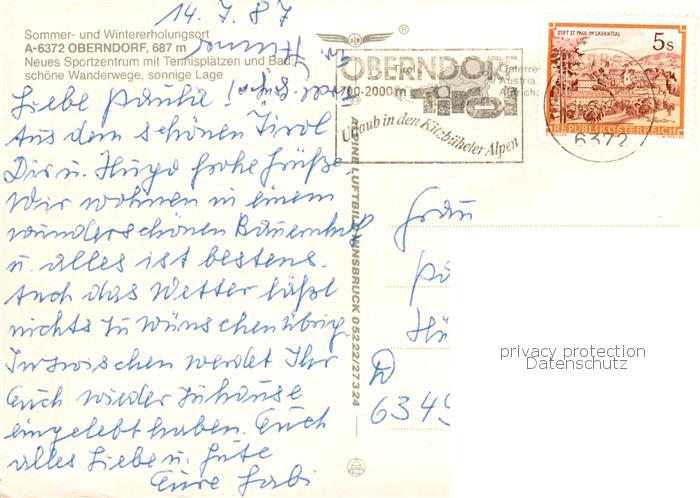 14.7.87
Sommer- und Wintererholungsort
A-6372 OBERNDORF, 687 m
Neues Sportzentrum mit Tennisplätzen und Bad,
schöne Wanderwege, sonnige Lage
Liebe Paula!
Aus dem schönen Tirol
Dir u. Hugo frohe Grüße.
Wir wohnen in einem
wunderschönen Bauernhof
u. alles ist bestens.
Auch das Wetter läßt
nichts zu wünschen übrig.
Inzwischen werdet Ihr
Euch wieder zuhause
eingelebt haben. Euch
alles Liebe u. Gute
Eure Gabi
ALPINE LUFTBILD INNSBRUCK 05222/27324
OBERNDORF
700-2000 m
Tirol
Urlaub in den Kitzbüheler Alpen
Österre
Austria
Autrich
STIFT ST. PAUL IM LAVANTTAL
5 S
REPUBLIK ÖSTERREICH
6372
Frau
Pa
Hü
D
6349
privacy protection
Datenschutz